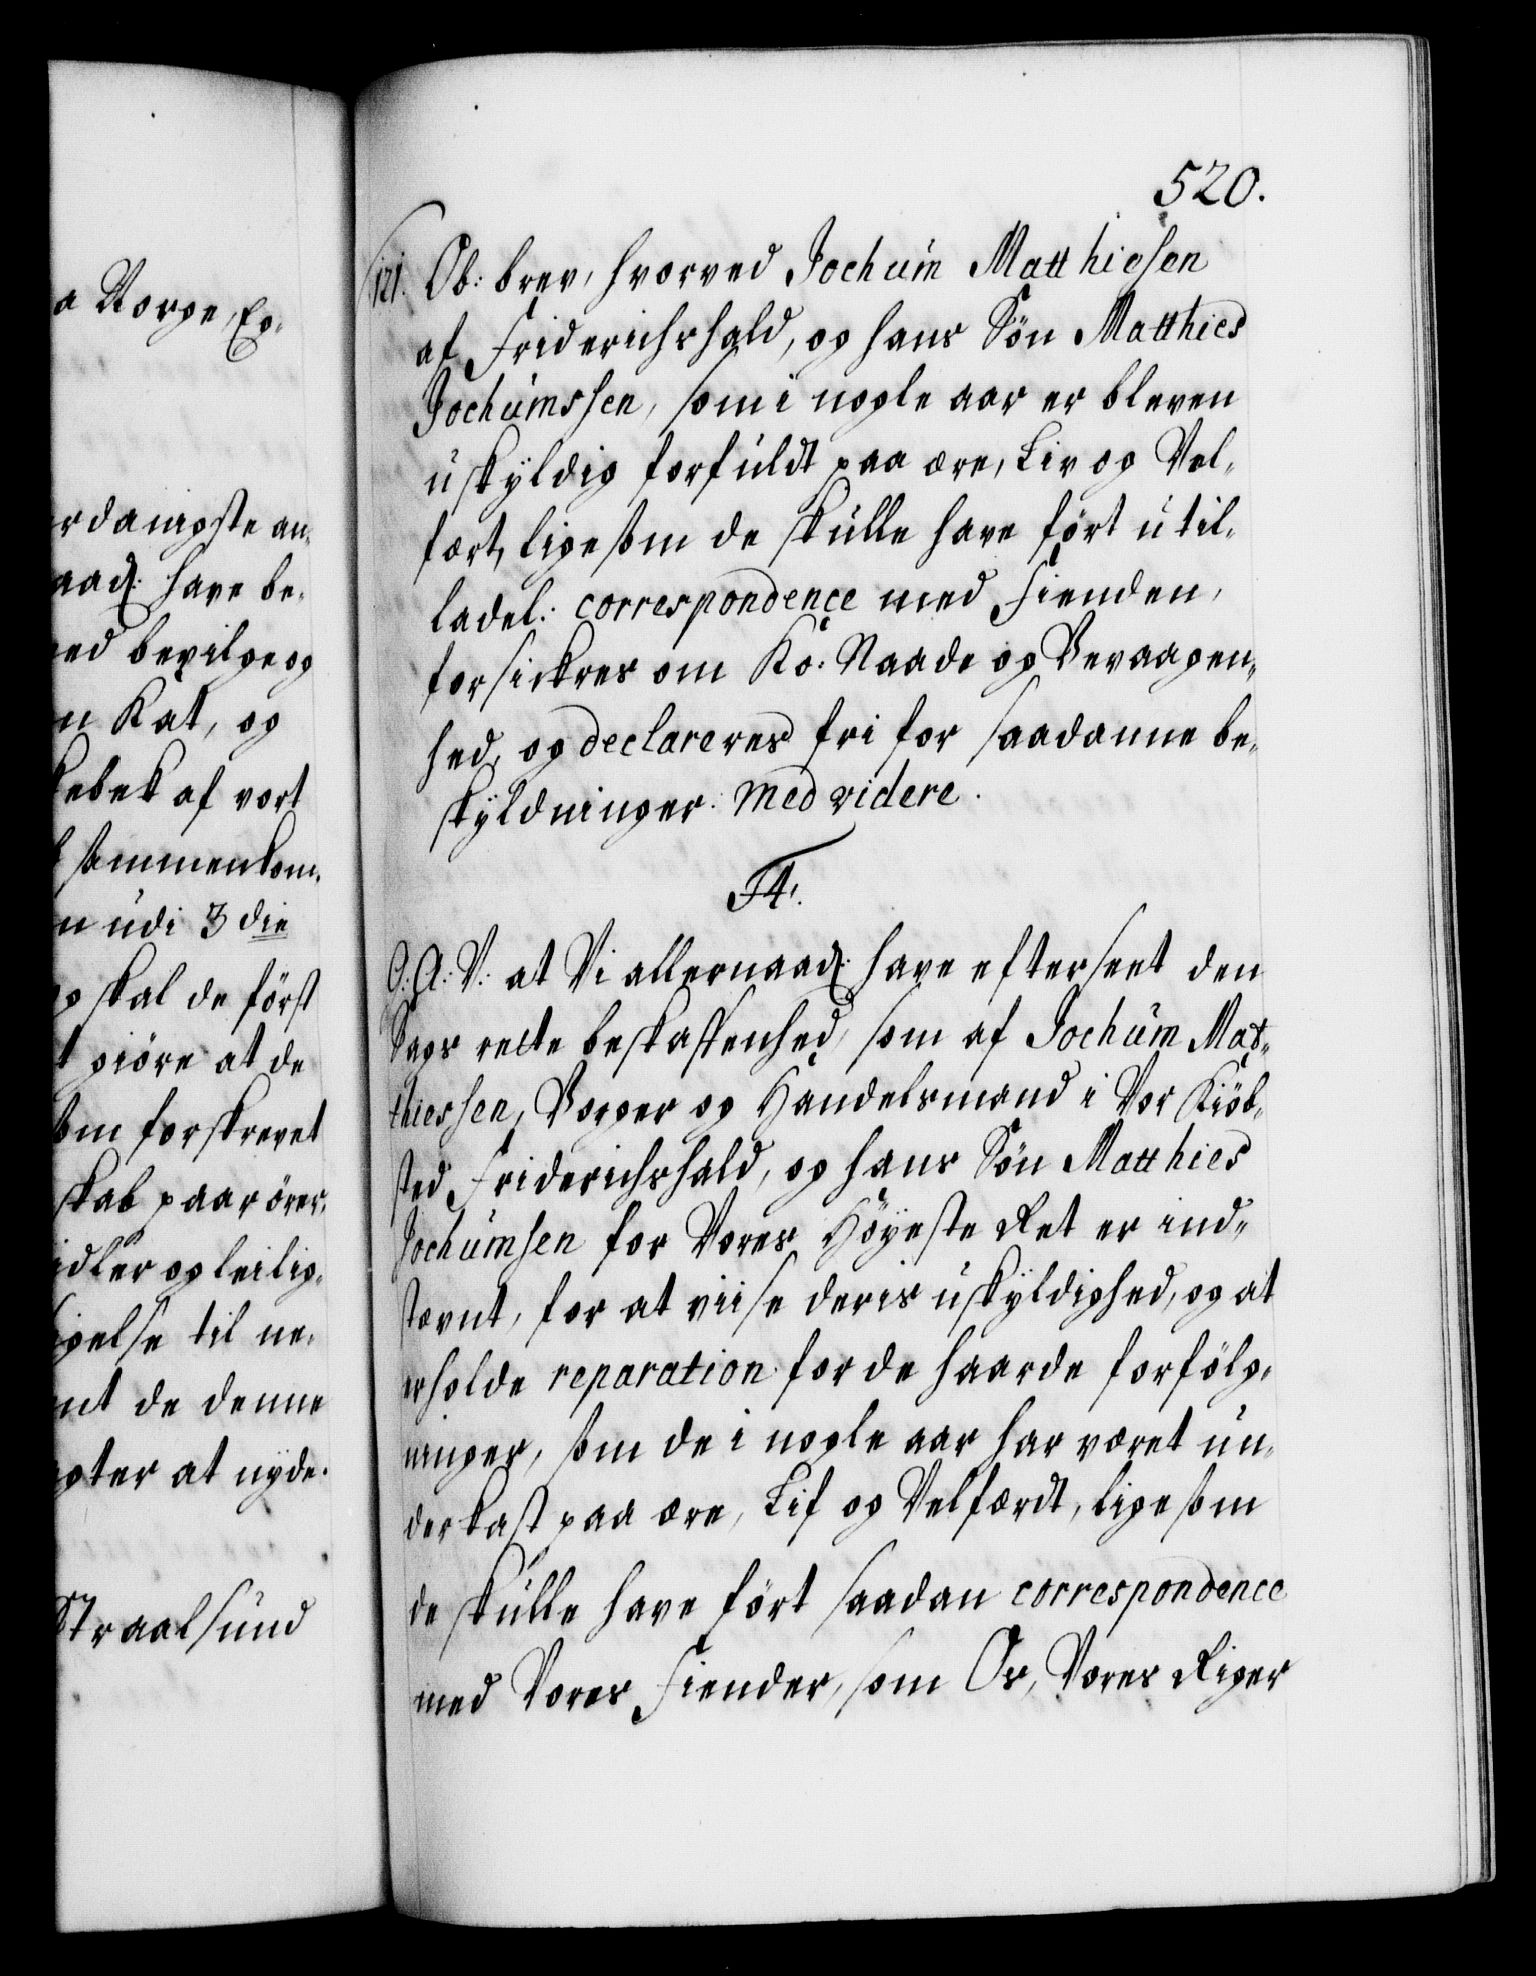 a Norge, Ex-
rdanigste an-
aad: have be-
ed bevilge og
n Kat, og
kebek af vort
sammenkom-
n udi 3 die
og skal de först
t giöre at de
som forskrevet
skab paarörer,
idler og leilig-
igelse til ne-
nt de denne
gter at nyde.
Straalsund
520.
121. Ob: brev, hvorved Jochum Matthiesen
af Friderichshald, og hans Sön Matthies
Jochumssen, som i nogle aar er bleven
uskyldig forfuldt paa ære, Liv og Vel-
fært, ligesom de skulle have fört util-
ladel: correspondence med Fienden,
forsickres om Ko: Naade og Bevaagen-
hed, og declareres fri for saadanne be-
skyldninger. med videre.
F4.
G: A: V: at Vi allernaad: have efterseet den
Sags rette beskaffenhed, som af Jochum Mat-
thiessen, Borger og Handelsmand i Vor Kiöb-
sted Friderichshald, og hans Sön Matthies
Jochumsen for Vores Höyeste Ret er ind-
stævnt, for at viise deris uskyldighed, og at
erholde reparation for de haarde forfölg-
ninger, som de i nogle aar har været un-
derkast paa ære, Lif og Velfærdt, ligesom
de skulle have fört saadan correspondence
med Vores Fiender, som Os, Vores Riger